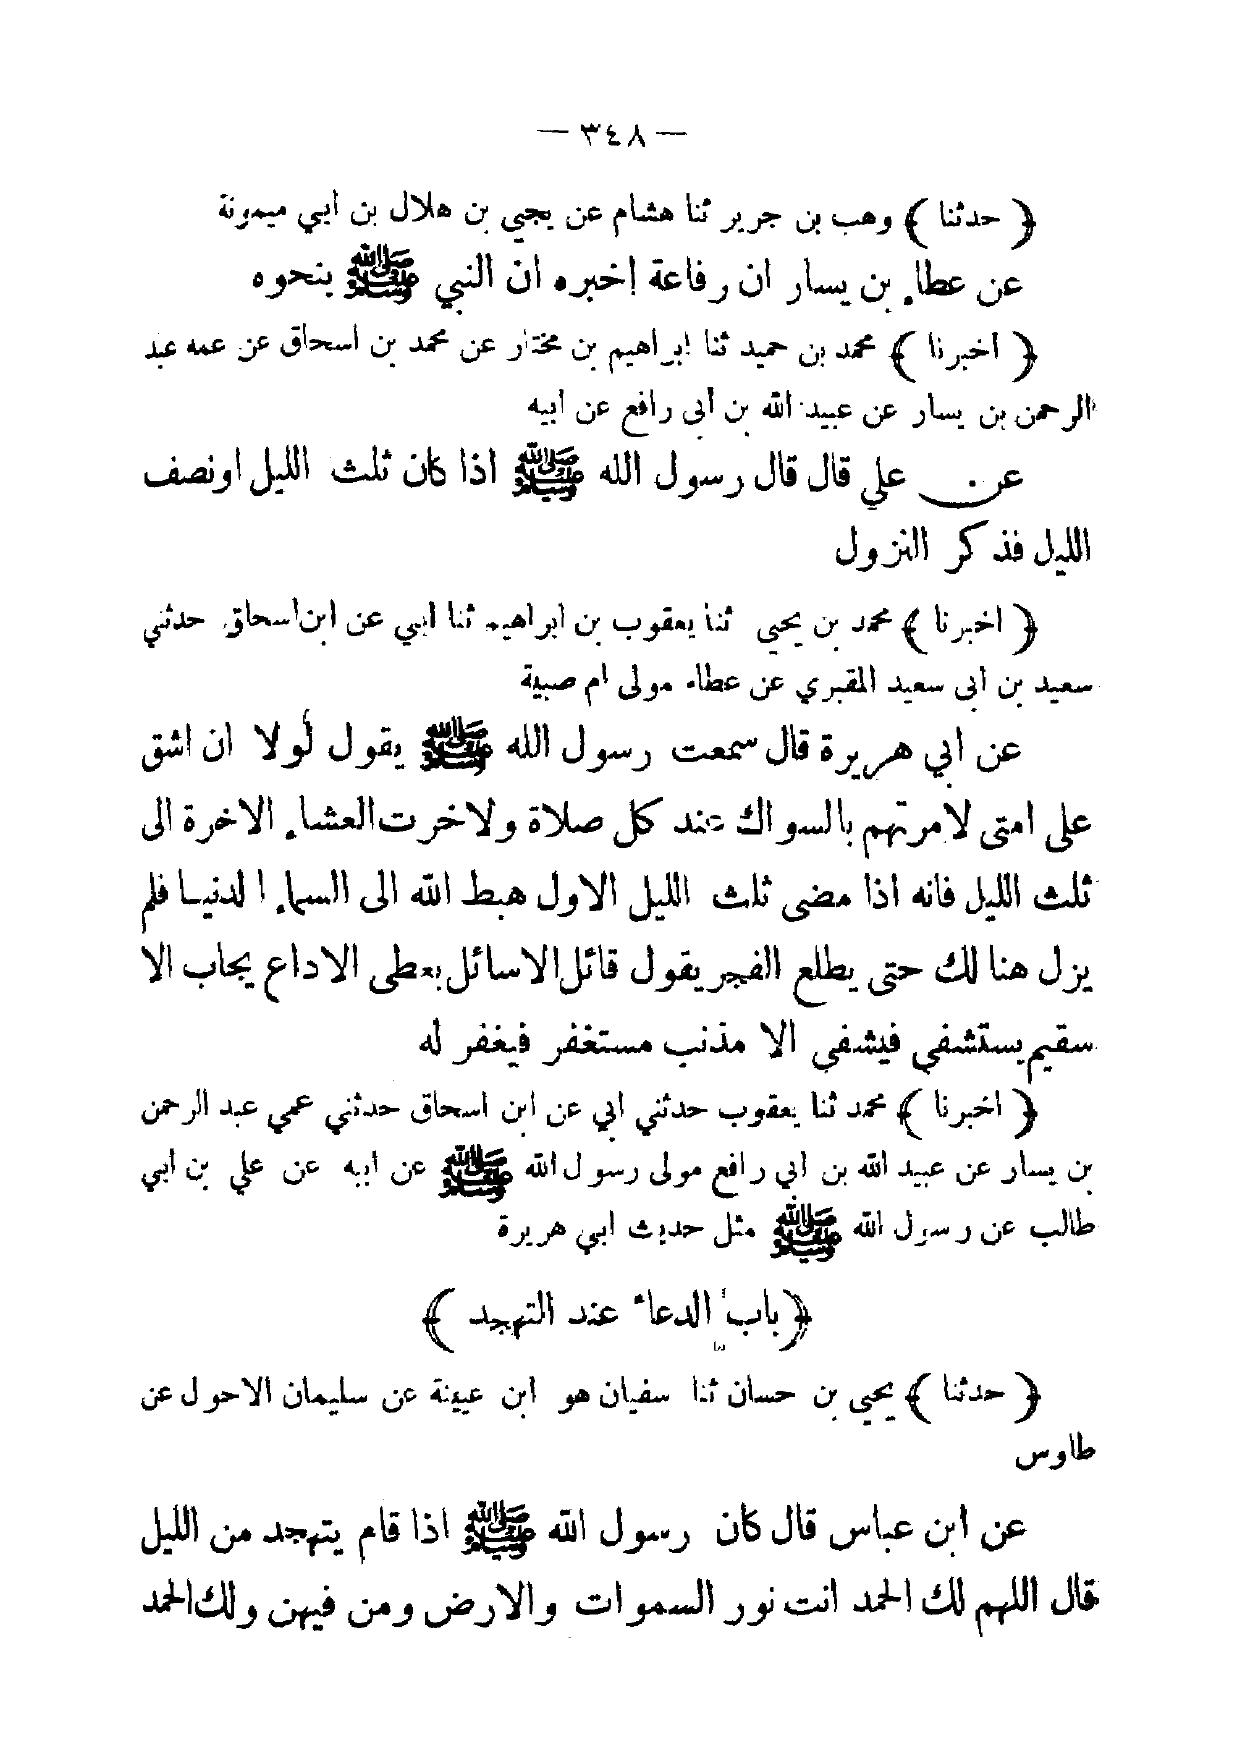 — ٣٤٨ —
﴿ حدثنا ﴾ وهب بن جرير ثنا هشام عن يحيي بن هلال بن ابي ميمونة
عن عطاء بن يسار ان رفاعة إخبره ان النبي ﷺ بنحوه
﴿ اخبرنا ﴾ محمد بن حميد ثنا ابراهيم بن مختار عن محمد بن اسحاق عن عمه عبد
الرحمن بن يسار عن عبيد الله بن أبى رافع عن ابيه
عن علي قال قال رسول الله ﷺ اذا كان ثلث الليل اونصف
الليل فذكر النزول
﴿ اخبرنا ﴾ محمد بن يحيي ثنا يعقوب بن ابراهيم ثنا ابي عن ابن اسحاق حدثني
سعيد بن ابى سعيد المقبري عن عطاء مولى ام صبية
عن ابي هريرة قال سمعت رسول الله ﷺ يقول لولا ان اشق
على امتى لامرتهم بالسواك عند كل صلاة ولاخرت العشاء الاخرة الى
ثلث الليل فانه اذا مضى ثلث الليل الاول هبط الله الى السماء الدنيا فلم
يزل هنا لك حتى يطلع الفجر يقول قائل الاسائل يعطى الاداع يجاب الا
سقيم يستشفي فيشفي الا مذنب مستغفر فيغفر له
﴿ اخبرنا ﴾ محمد ثنا يعقوب حدثني ابي عن ابن اسحاق حدثني عمي عبد الرحمن
بن يسار عن عبيد الله بن ابي رافع مولى رسول الله ﷺ عن ابيه عن علي بن ابي
طالب عن رسول الله ﷺ مثل حديث ابي هريرة
﴿ باب الدعاء عند التهجد ﴾
﴿ حدثنا ﴾ يحيى بن حسان ثنا سفيان هو ابن عيينة عن سليمان الاحول عن
طاوس
عن ابن عباس قال كان رسول الله ﷺ اذا قام يتهجد من الليل
قال اللهم لك الحمد انت نور السموات والارض ومن فيهن ولك الحمد